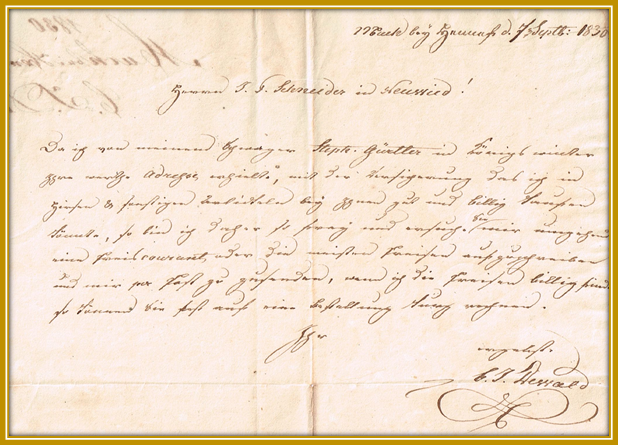 Much bey Hennef d. 7 Septb: 1830
Herrn T. G. Schneider in Neuwied!
Da ich von meinem Schwager Steph. Gürtler in Königswinter
Ihre werthe Adresse erhielte, mit der Versicherung das ich in
& sonstigen Artikelen bey Ihnen gut und billig kaufen
könnte, so bin ich daher so freij und ersuche Sie mir umgehend
eine Preiscourant, oder die meisten Preisen aufzuschreiben
und mir per Post zu zusenden, wenn ich die Preisen billig finde
so können Sie fest auf eine Bestellung rechnen.
Ihr
ergebest.
C. J. Dewald
1830
Much
C. J. D